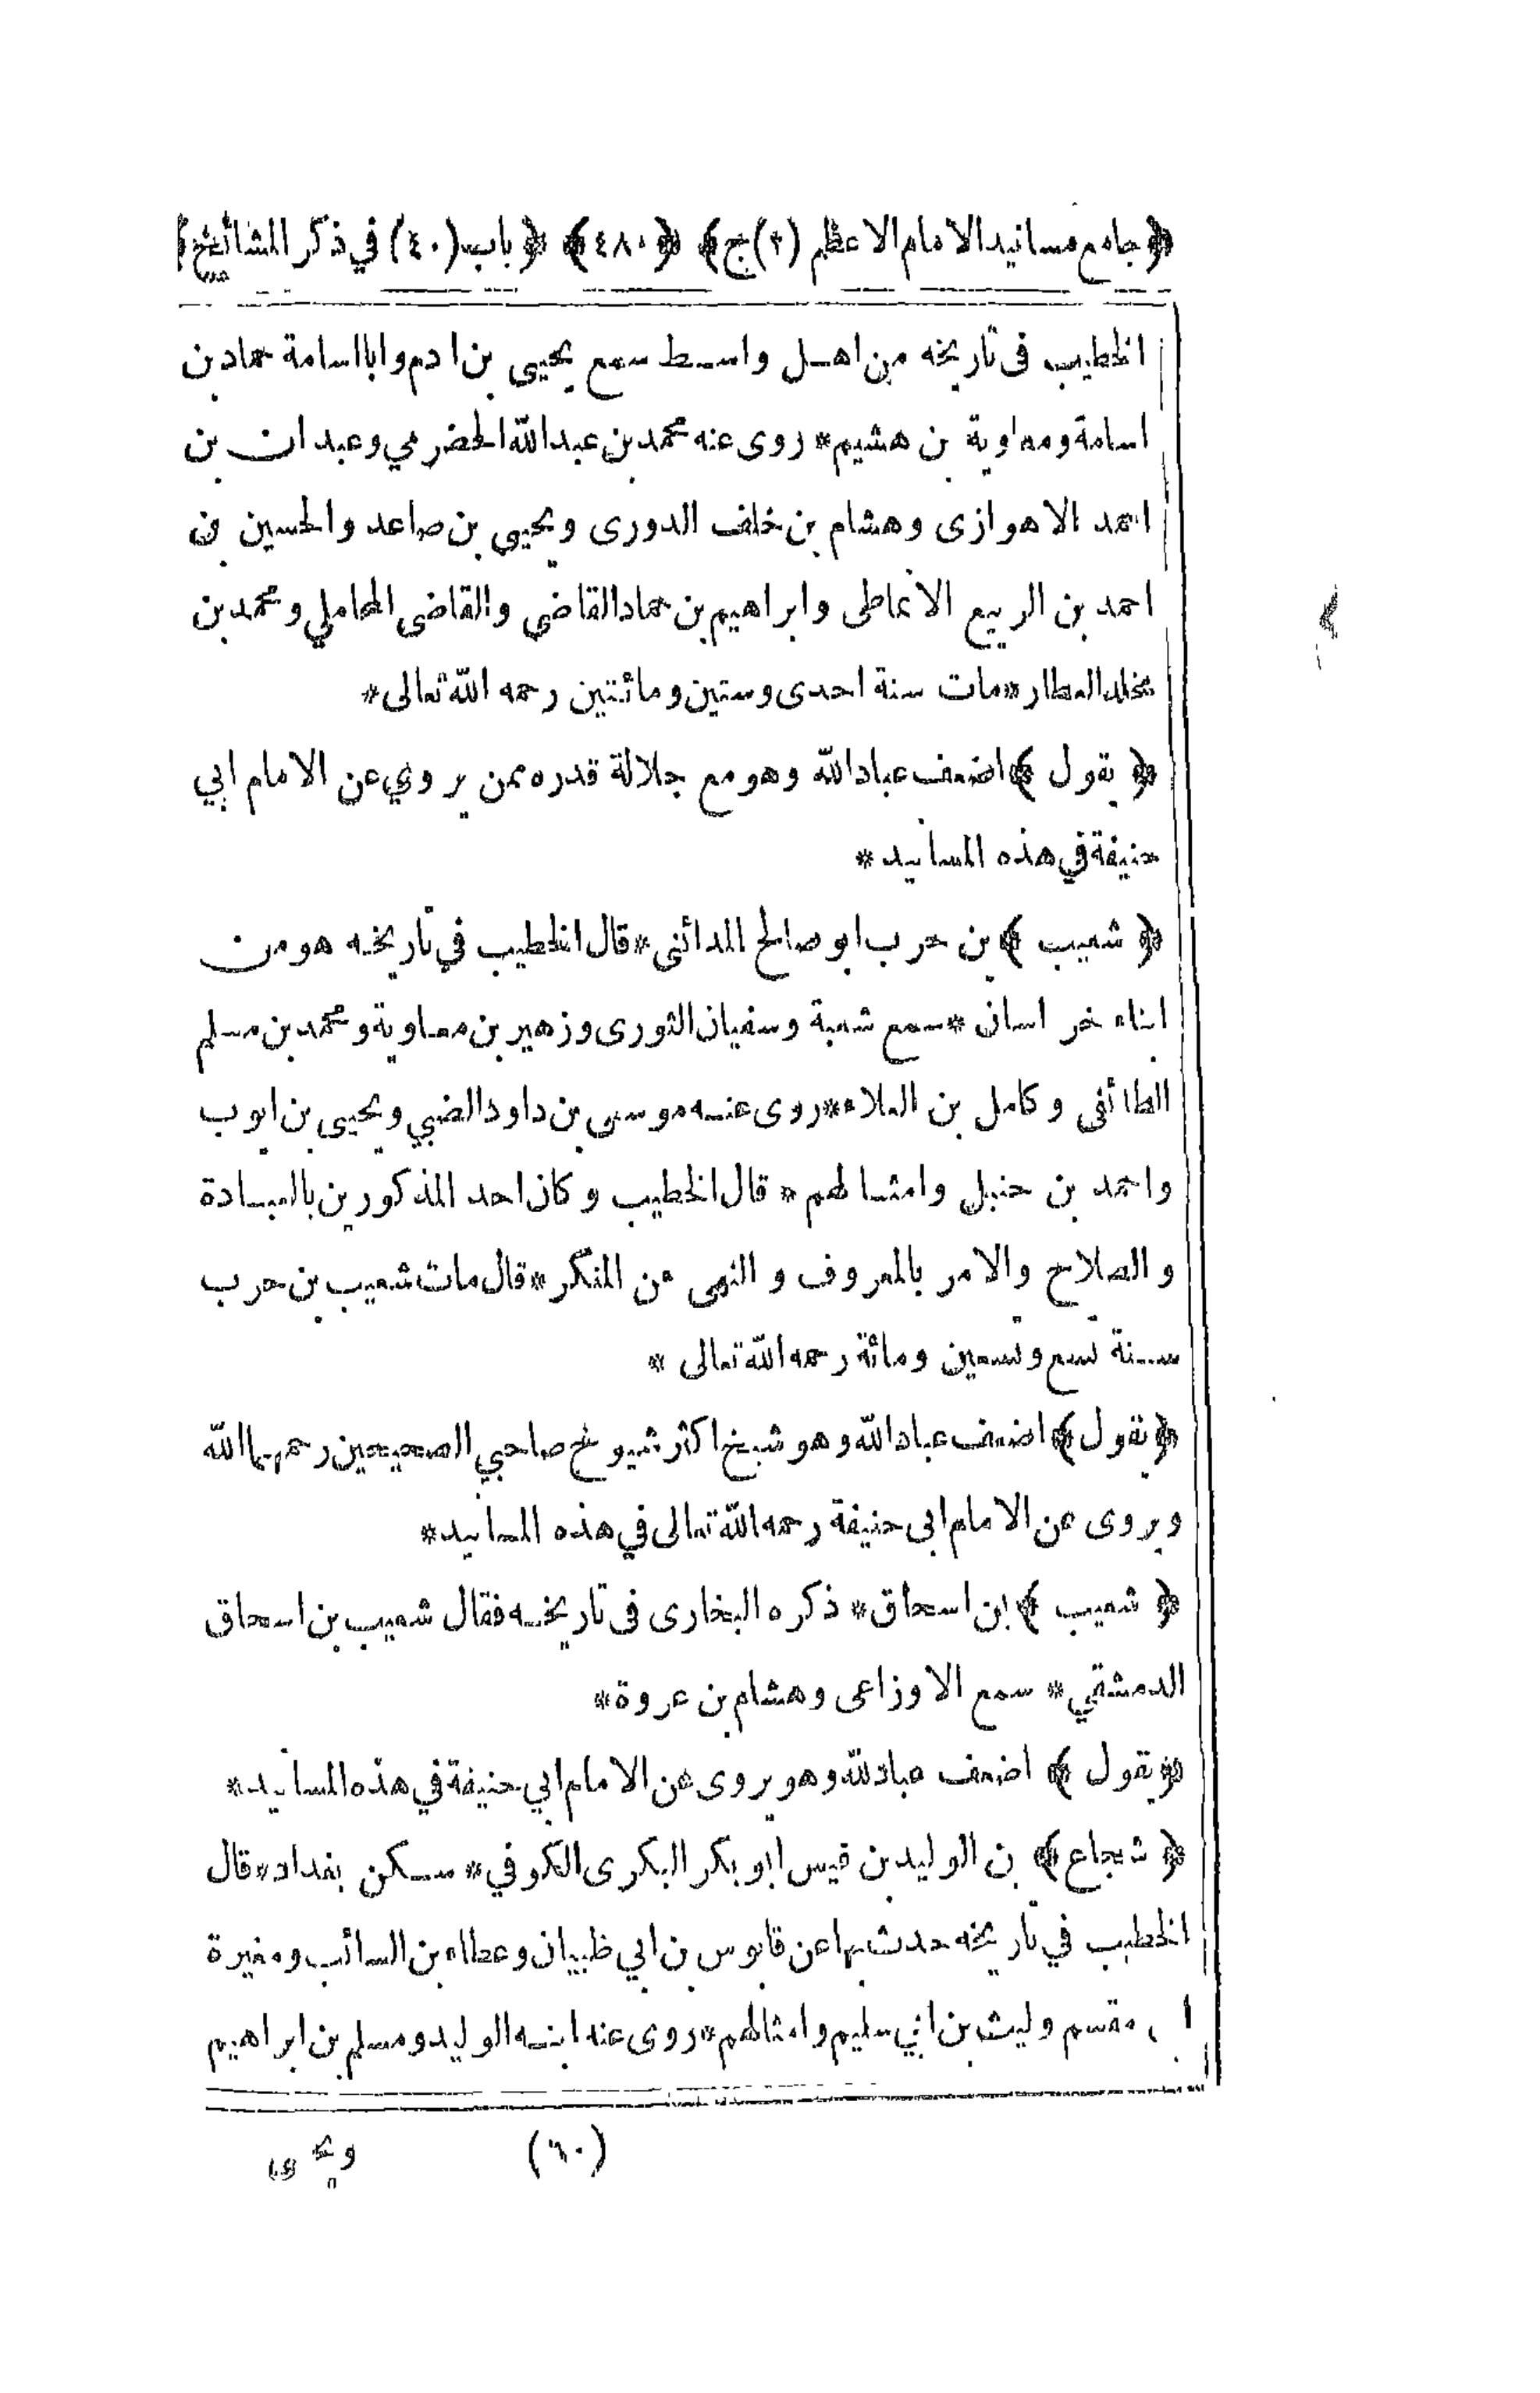 ﴿جامع مسانيد الامام الاعظم (٢)ج﴾ ﴿٤٨٠﴾ ﴿باب (٤٠) في ذكر المشائخ﴾
الخطيب فى تاريخه من اهل واسط سمع يحيى بن ادم وابا اسامة حماد بن
اسامة ومعاوية بن هشيم* روى عنه محمد بن عبدالله الحضرمي وعبدان بن
احمد الاهوازى وهشام بن خلف الدورى ويحيى بن صاعد والحسين بن
احمد بن الربيع الانماطى وابراهيم بن حماد القاضي والقاضى المحاملي ومحمد بن
مخلد العطار* مات سنة احدى وستين ومائتين رحمه الله تعالى*
﴿يقول﴾ اضعف عباد الله وهو مع جلالة قدره ممن يروي عن الامام ابي
حنيفة في هذه المسانيد*
﴿شعيب﴾ بن حرب ابو صالح المدائنى* قال الخطيب في تاريخه هو من
ابناء خراسان* سمع شعبة وسفيان الثورى وزهير بن معاوية ومحمد بن مسلم
الطائفى وكامل بن العلاء* روى عنه موسى بن داود الضبي ويحيى بن ايوب
واحمد بن حنبل وامثالهم* قال الخطيب وكان احد المذكورين بالعبادة
والصلاح والامر بالمعروف والنهى عن المنكر* قال مات شعيب بن حرب
سنة تسع وتسعين ومائة رحمه الله تعالى*
﴿يقول﴾ اضعف عباد الله وهو شيخ اكثر شيوخ صاحبي الصحيحين رحمهما الله
ويروى عن الامام ابى حنيفة رحمه الله تعالى في هذه المسانيد*
﴿شعيب﴾ ابن اسحاق* ذكره البخارى فى تاريخه فقال شعيب بن اسحاق
الدمشقي* سمع الاوزاعى وهشام بن عروة*
﴿يقول﴾ اضعف عباد لله وهو يروى عن الامام ابي حنيفة في هذه المسانيد*
﴿شجاع﴾ بن الوليد بن قيس ابو بكر البكرى الكوفي* سكن بغداد* قال
الخطيب في تاريخه حدث بها عن قابوس بن ابي ظبيان وعطاء بن السائب ومغيرة
مقسم وليث بن ابي سليم وامثالهم* روى عنه ابنه الوليد ومسلم بن ابراهيم
(٦٠) ويحيى